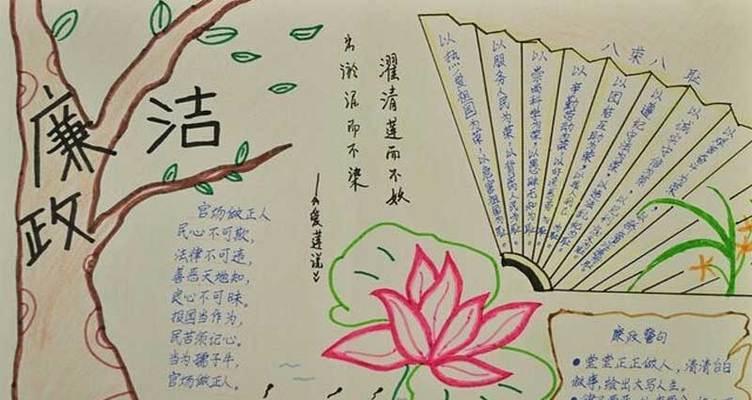 廉洁
政
官场做正人
民心不可欺,
法律不可违,
善恶天地知,
良心不可昧。
国当作为,
民苦须记心。
当为孺子牛,
官场做正人。
出淤泥而不染
濯清莲而不妖
——《爱莲说》
八荣八耻
以热爱祖国为荣,以危害祖国为耻。
以服务人民为荣,以背离人民为耻。
以崇尚科学为荣,以愚昧无知为耻。
以辛勤劳动为荣,以好逸恶劳为耻。
以团结互助为荣,以
以遵纪守法为荣,以违法乱纪为耻
以诚实守信为荣,
以艰苦奋斗为荣,
廉政警句
● 堂堂正正做人,清清白白
做事,绘出大写人生。